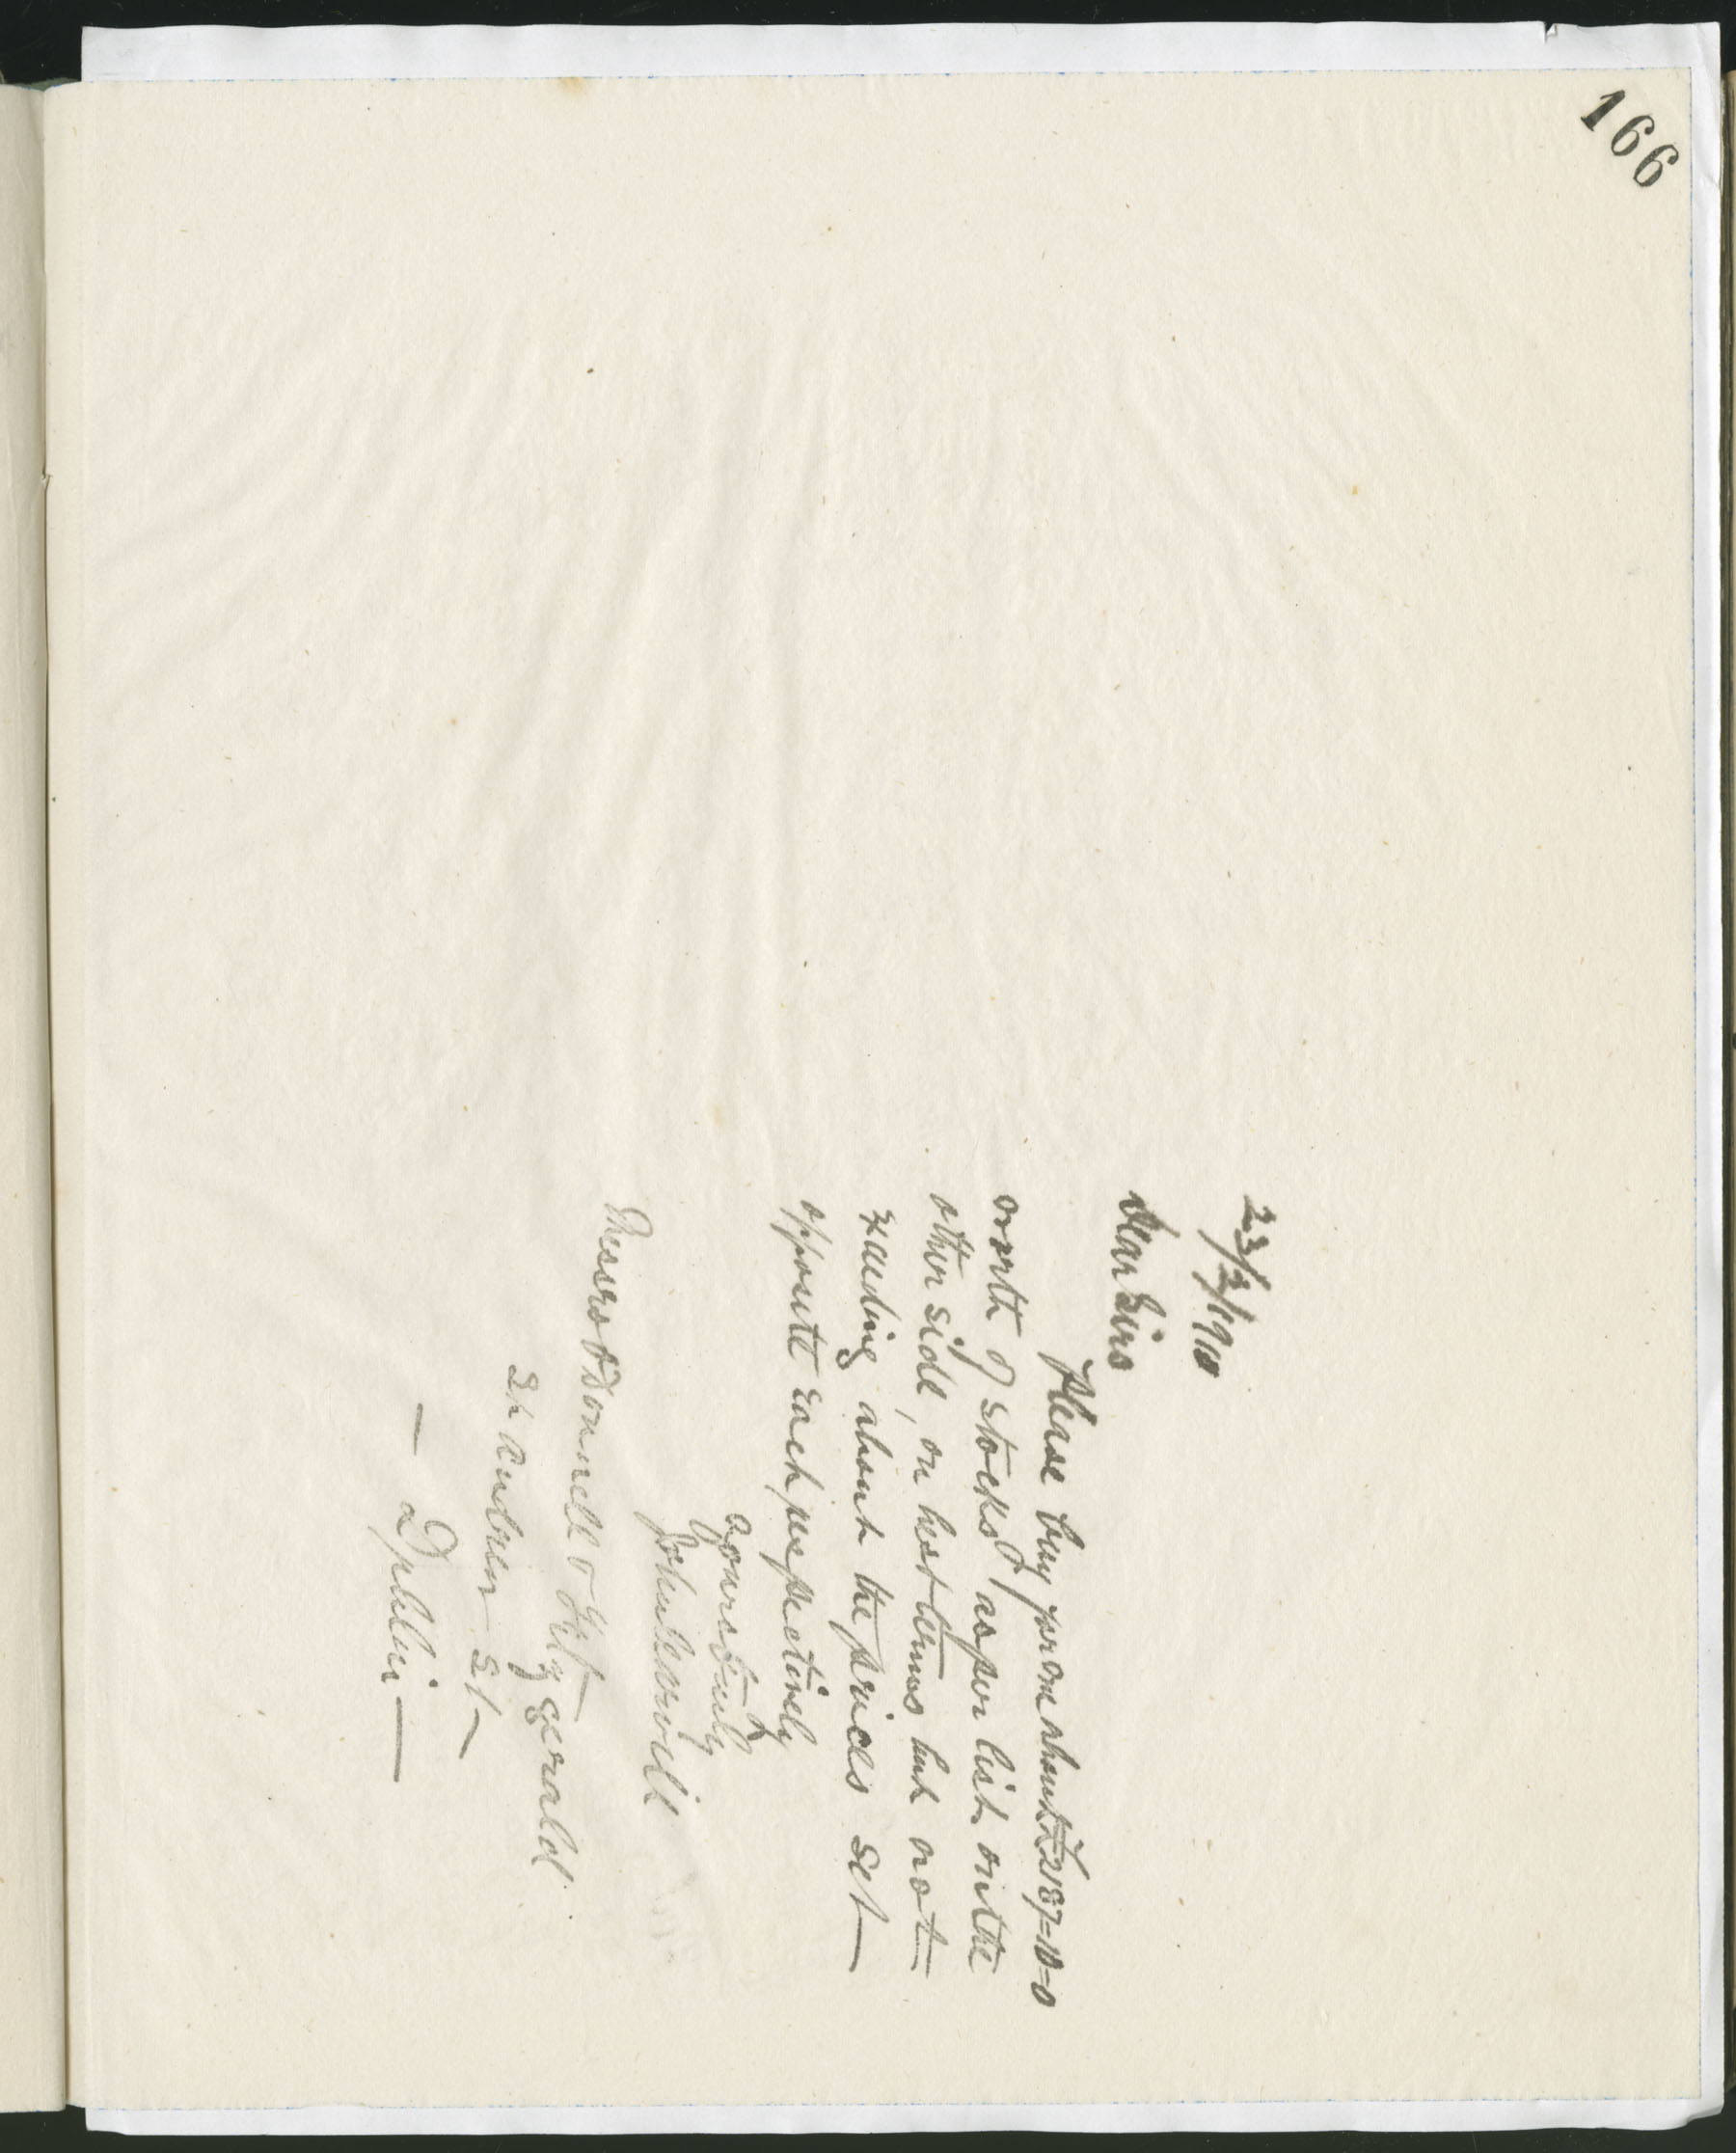 166
23/2/1910
Dear Sirs
Please buy for me about £2187=10=0
worth of stocks as per list on the
other side, on best terms but not
exceeding about the prices set
opposite each respectively
Yours truly
Messrs O'Donnell & Fitzgerald
St Andrew St
Dublin